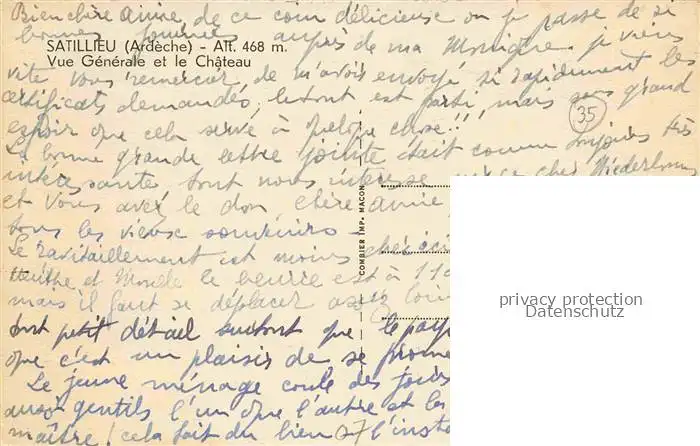 Bien chère amie, de ce coin délicieuse ou je passe de si
bonnes journées auprès de ma Monique je viens
SATILLIEU (Ardèche) - Alt. 468 m.
Vue Générale et le Château
vite vous remercier de m'avoir envoyé si rapidement les
certificats demandés, le tout est parti, mais sans grand
espoir que cela serve à quelque chose!!
35
La bonne grande lettre jointe était comme toujours très
intéressante, tout nous intéresse chez Niederbronn
et vous avez le don chère amie,
tous les vieux souvenirs -
Le ravitaillement est moins cher
Meurthe et Moselle le beurre est à 110
mais il faut se déplacer assez loin
tout petit détail surtout que le pays
que c'est un plaisir de se prome
Le jeune ménage coule des jours
aussi gentils l'un que l'autre et les
maître! cela fait du bien l'insta
COMBIER IMP. MACON
privacy protection
Datenschutz